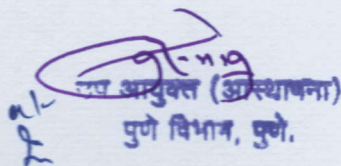 उप आयुक्त (आस्थापना)
पुणे विभाग, पुणे.